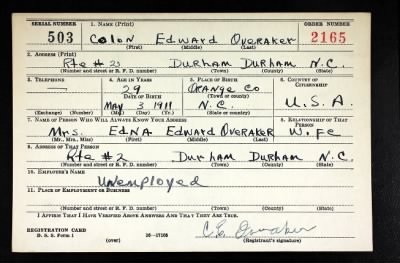 SERIAL NUMBER 1. NAME (Print) ORDER NUMBER
503 Colon Edward Overaker 2165
(First) (Middle) (Last)
2. ADDRESS (Print)
Rte # 2 Durham Durham N.C.
(Number and street or R. F. D. number) (Town) (County) (State)
3. TELEPHONE 4. AGE IN YEARS 5. PLACE OF BIRTH 6. COUNTRY OF CITIZENSHIP
— 29 Orange Co
DATE OF BIRTH (Town or county)
May 3 1911 N.C. U.S.A.
(Exchange) (Number) (Mo.) (Day) (Yr.) (State or country)
7. NAME OF PERSON WHO WILL ALWAYS KNOW YOUR ADDRESS 8. RELATIONSHIP OF THAT PERSON
Mrs. Edna Edward Overaker Wife
(Mr., Mrs., Miss) (First) (Middle) (Last)
9. ADDRESS OF THAT PERSON
Rte #2 Durham Durham N.C.
(Number and street or R. F. D. number) (Town) (County) (State)
10. EMPLOYER'S NAME
Unemployed
11. PLACE OF EMPLOYMENT OR BUSINESS
(Number and street or R. F. D. number) (Town) (County) (State)
I AFFIRM THAT I HAVE VERIFIED ABOVE ANSWERS AND THAT THEY ARE TRUE.
REGISTRATION CARD C.E. Overaker
D. S. S. Form 1 (over) 16—17105 (Registrant's signature)